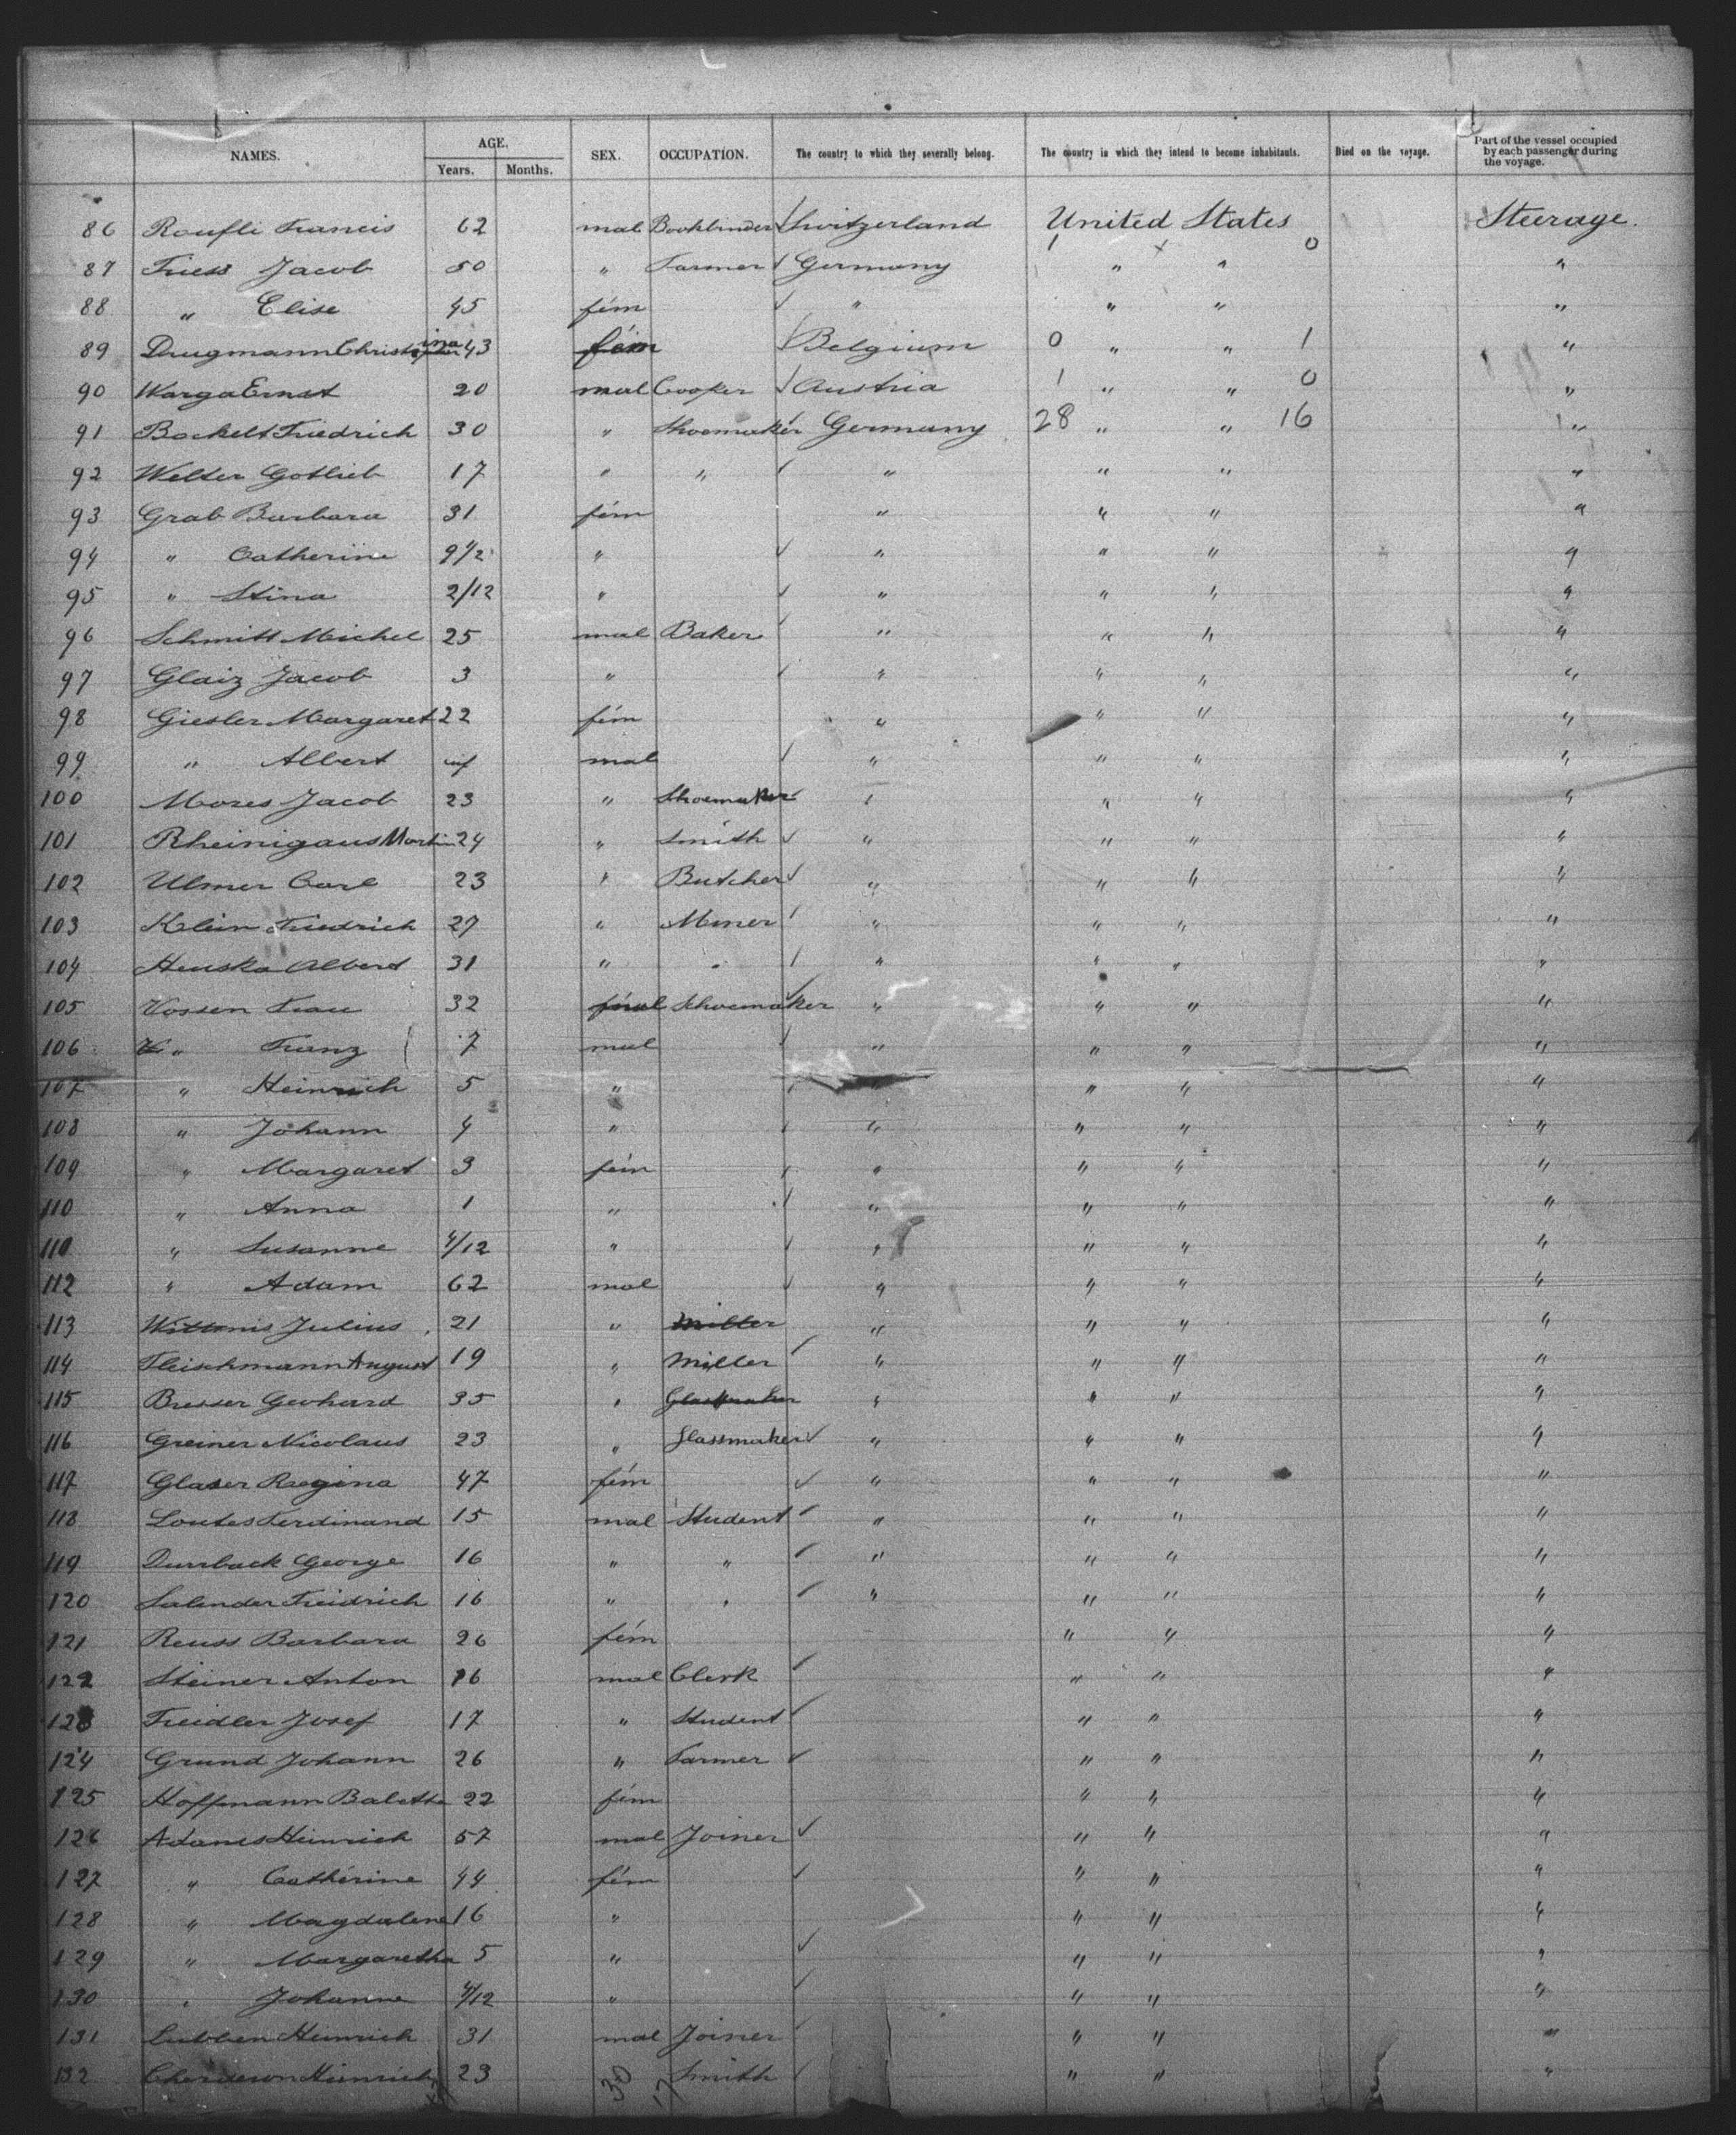 NAMES. AGE. Years. Months. SEX. OCCUPATION. The country to which they severally belong. The country in which they intend to become inhabitants. Died on the voyage. Part of the vessel occupied by each passenger during the voyage.
86 Roufli Francis 62 mal Bookbinder Switzerland United States Steerage.
1 0
87 Friess Jacob 50 " Farmer Germany " " "
88 " Elise 45 fém " " " "
89 Drugmann Christina 43 fém Belgium 0 " " 1 "
90 Warga Ernst 20 mal Cooper Austria 1 " " 0 "
91 Bockelt Friedrich 30 " Shoemaker Germany 28 " " 16 "
92 Welter Gotlieb 17 " " " " " "
93 Grab Barbara 31 fém " " " "
94 " Catherine 9 1/2 " " " " "
95 " Stina 2/12 " " " " "
96 Schmitt Michel 25 mal Baker " " " "
97 Glaiz Jacob 3 " " " " "
98 Giesler Margaret 22 fém " " " "
99 " Albert inf mal " " " "
100 Mores Jacob 23 " Shoemaker " " " "
101 Rheinigaus Martin 24 " Smith " " " "
102 Ulmer Carl 23 " Butcher " " " "
103 Klein Friedrich 27 " Miner " " " "
104 Henska Albert 31 " " " " " "
105 Vossen Frau 32 Schoemaker " " " "
106 " Franz 7 mal " " " "
107 " Heinrich 5 " " " " "
108 " Johann 4 " " " " "
109 " Margaret 3 fém " " " "
110 " Anna 1 " " " " "
110 " Susanne 4/12 " " " " "
112 " Adam 62 mal " " " "
113 Julius 21 " Miller " " " "
114 Fleischmann August 19 " Miller " " " "
115 Bresser Gerhard 35 " Glassmaker " " " "
116 Greiner Nicolaus 23 " Glassmaker " " " "
117 Glaser Regina 47 fém " " " "
118 Loutes Ferdinand 15 mal Student " " " "
119 Durrback George 16 " " " " " "
120 Salender Freidrich 16 " " " " " "
121 Reuss Barbara 26 fém " " "
122 Steiner Anton 16 mal Clerk " " "
123 Freidler Josef 17 " Student " " "
124 Grund Johann 26 " Farmer " " "
125 Hoffmann Babetta 22 fém " " "
126 Adams Heinrich 57 mal Joiner " " "
127 " Cathérine 44 fém " " "
128 " Magdalene 16 " " " "
129 " Margaretha 5 " " " "
130 " Johanne 4/12 " " " "
131 Lubben Heinrich 31 mal Joiner " " "
132 Heinrich 23 Smith " " "
30 17